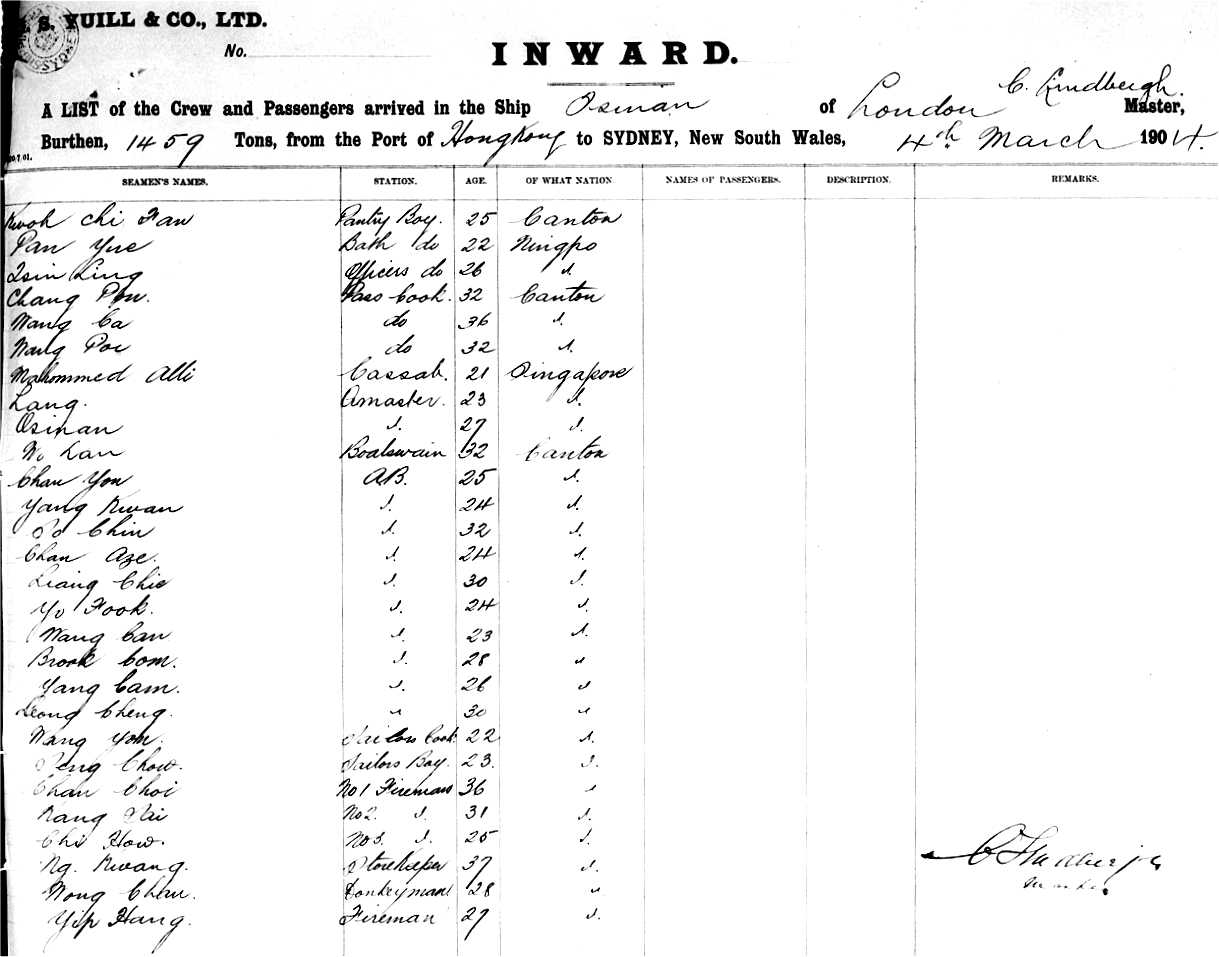 S. YUILL & CO., LTD.
No.
INWARD.
C. Lindbergh.
A LIST of the Crew and Passengers arrived in the Ship Osman of London Master,
Burthen, 1459 Tons, from the Port of Hongkong to SYDNEY, New South Wales, 4th March 1904.
SEAMEN'S NAMES. STATION. AGE. OF WHAT NATION. NAMES OF PASSENGERS. DESCRIPTION. REMARKS.
Kwoh Chi Fan Pantry Boy. 25 Canton
Pan Yue Bath do 22 Ningpo
Tsin Ling Officers do 26 "
Chang Pou. Pass Cook. 32 Canton
Wang Ca do 36 "
Wang Poi do 32 "
Mahommed Alli Cassab. 21 Singapore
Lang. Amaster. 23 "
Osman " 27 "
Wo Lan Boatswain 32 Canton
Chan You AB. 25 "
Yang Kwan " 24 "
So Chin " 32 "
Chan Aze. " 24 "
Liang Chie " 30 "
Yo Fook. " 24 "
Wang Can " 23 "
Brook Com. " 28 "
Yang Cam. " 26 "
Leong Cheng. " 30 "
Wang Yom. Sailors Cook 22 "
Chow. Sailors Boy. 23. "
Chan Choi No 1 Fireman 36 "
Kang Tai No 2. " 31 "
Chi How. No 3. " 25 "
Ng. Kwang. Storekeeper 37 "
Wong Chan. Donkeyman 28 "
Yip Hang. Fireman 27 "
Master